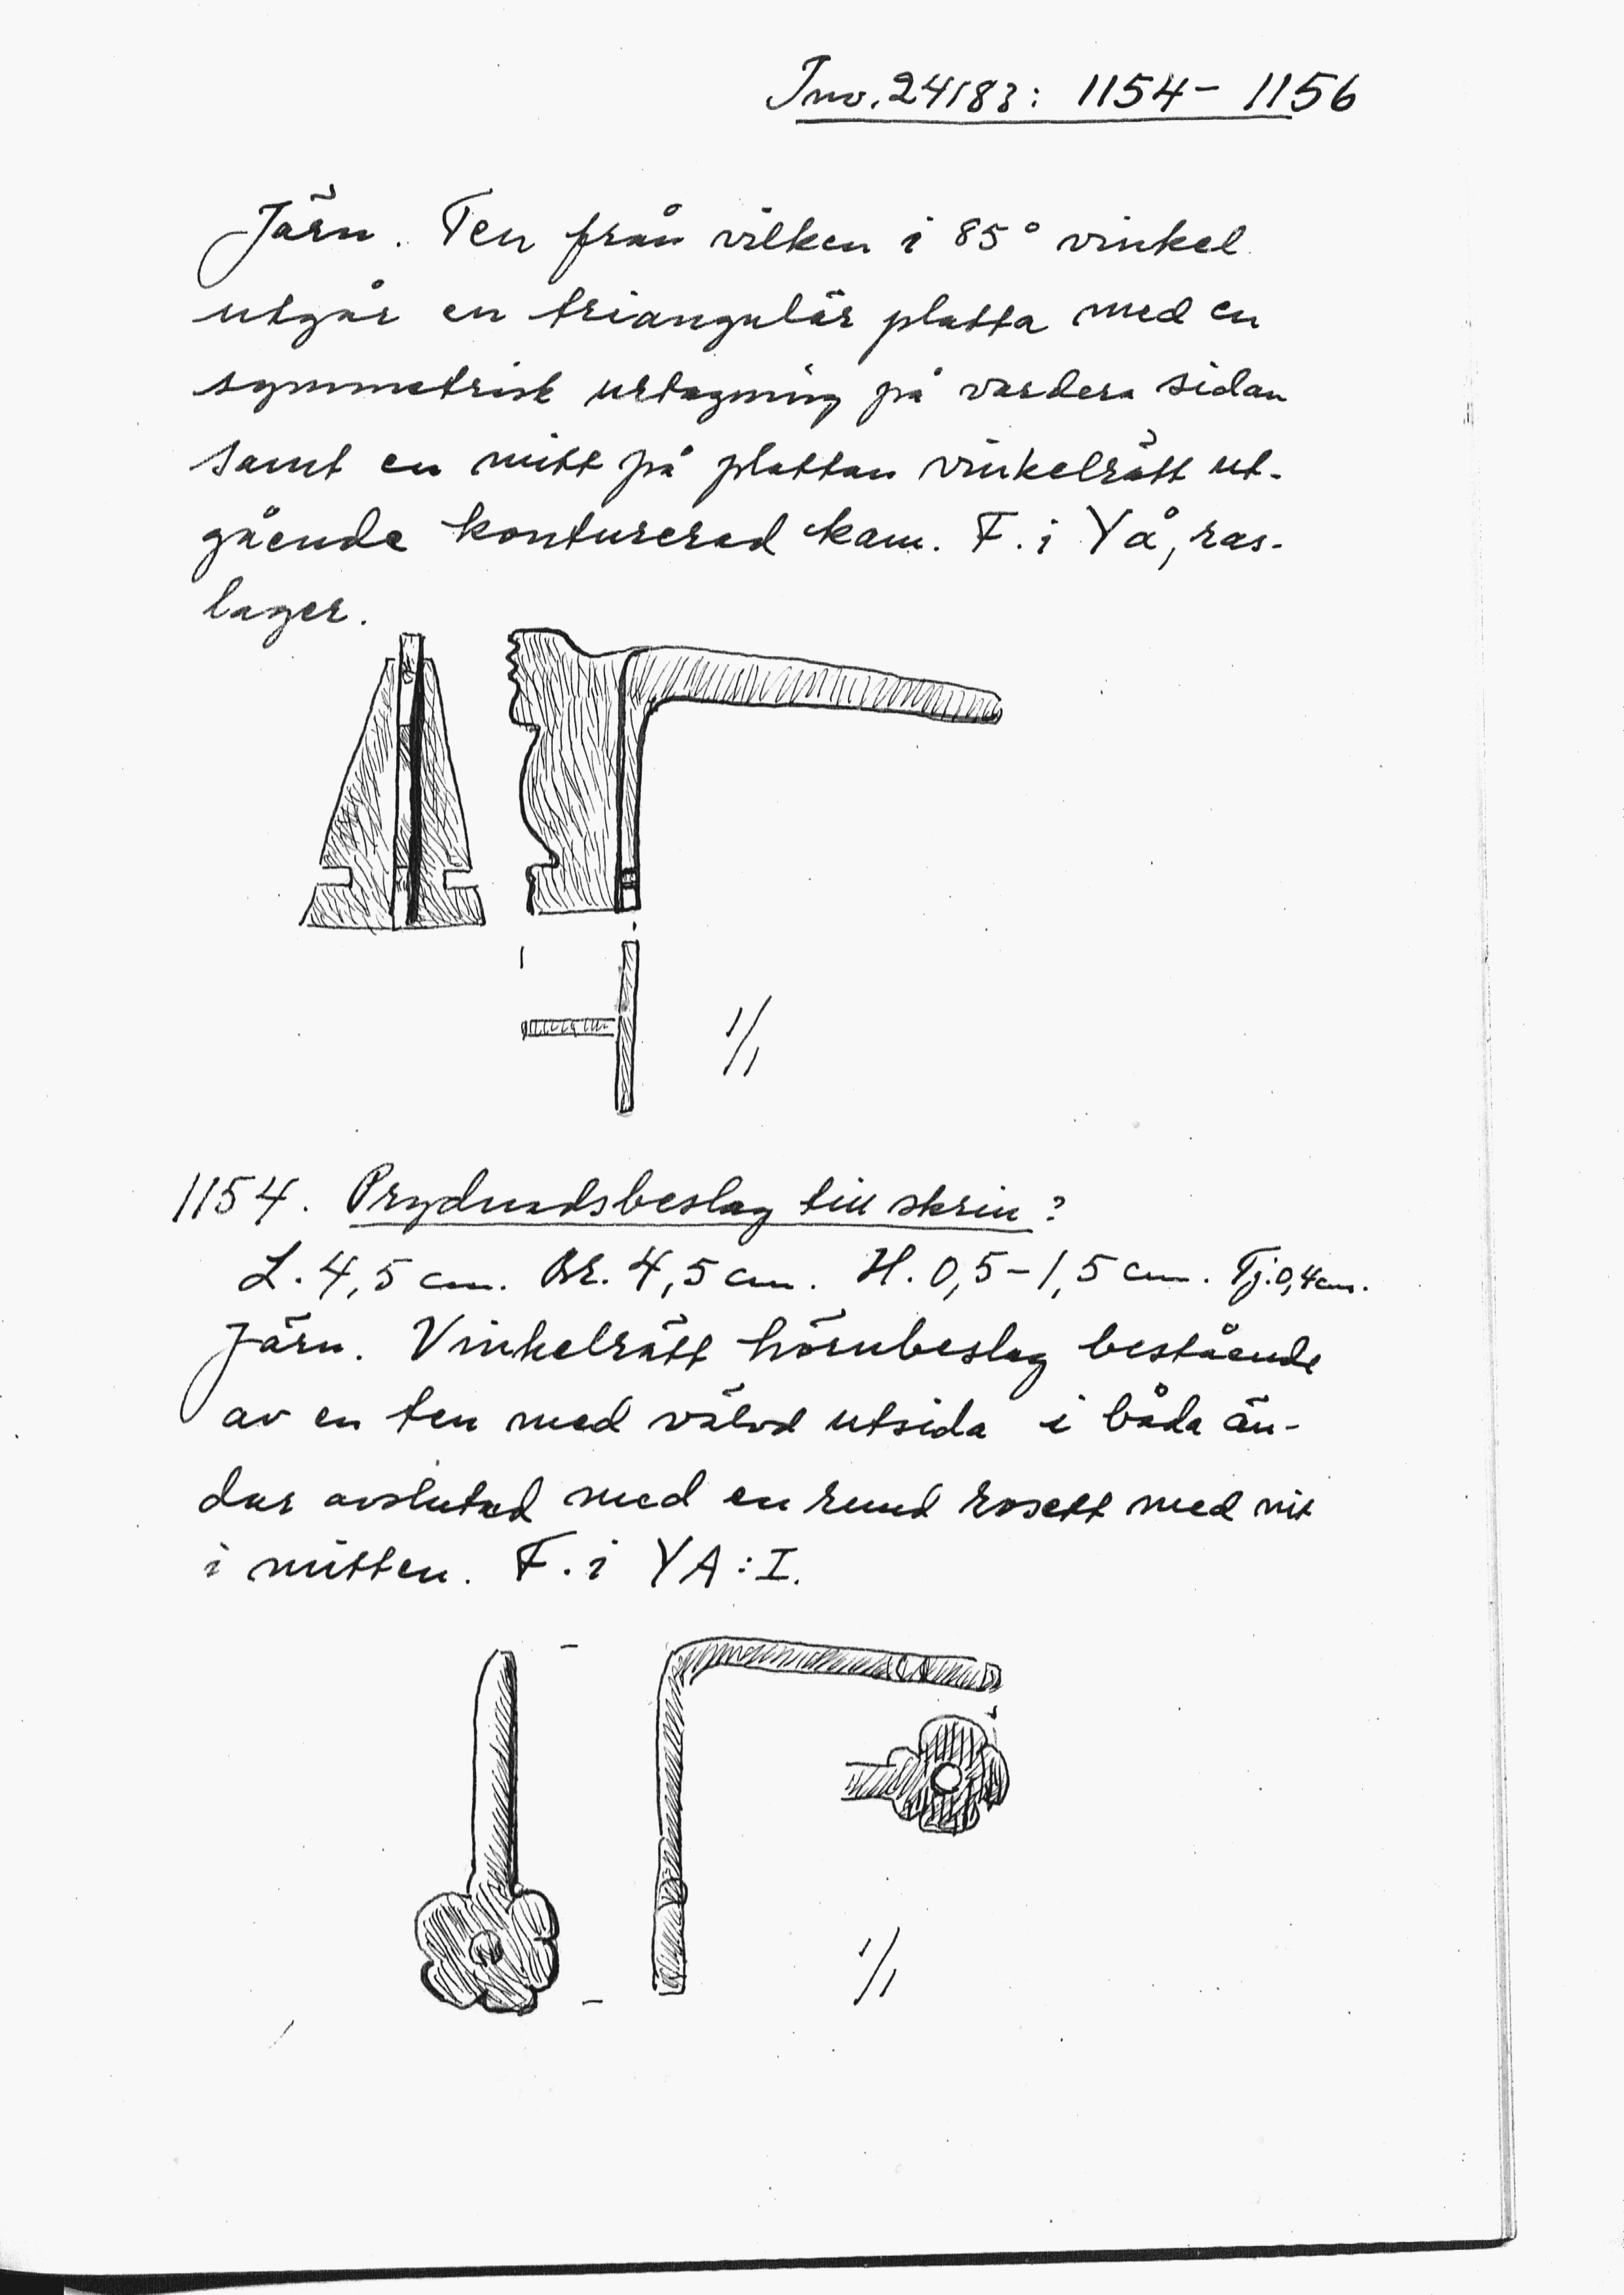 Inv. 24183: 1154- 1156
Järn. Ten från vilken i 85° vinkel
utgår en triangulär platta med en
symmetrisk urtagning på vardera sidan
samt en mitt på plattan vinkelrätt ut-
gående konturerad kam. F. i YÅ, ras-
lager.
1/1
1154. Prydnadsbeslag till skrin?
L. 4,5 cm. Br. 4,5 cm. H. 0,5-1,5 cm. Tj. 0,4 cm.
Järn. Vinkelrätt hörnbeslag bestående
av en ten med välvd utsida i båda än-
dar avslutad med en rund rosett med nit
i mitten. F. i YA:I.
1/1